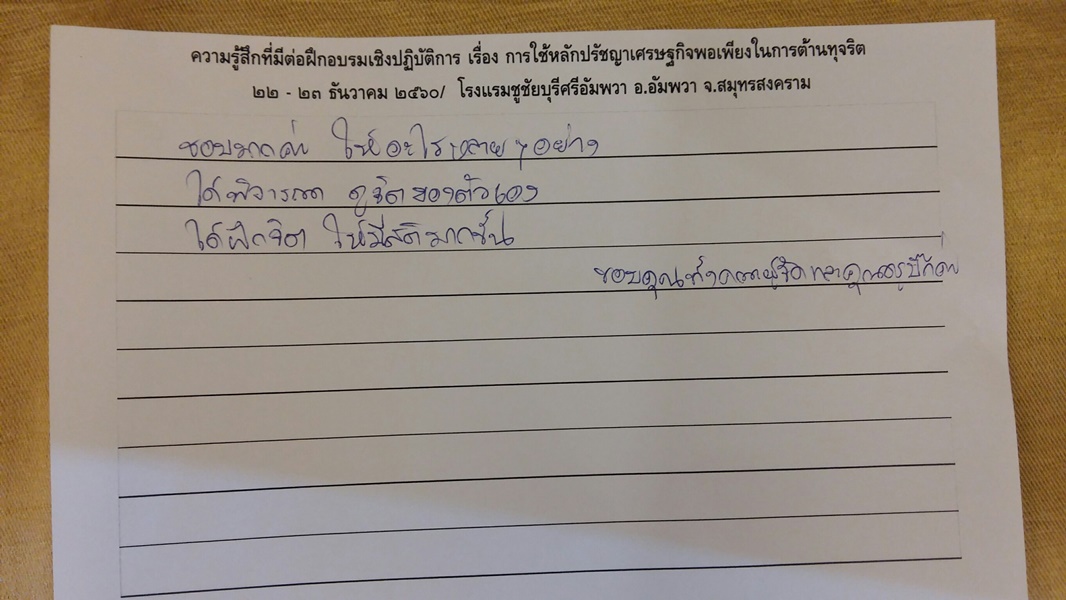 ความรู้สึกที่มีต่อฝึกอบรมเชิงปฏิบัติการ เรื่อง การใช้หลักปรัชญาเศรษฐกิจพอเพียงในการต้านทุจริต
๒๒ - ๒๓ ธันวาคม ๒๕๖๐/ โรงแรมชูชัยบุรีศรีอัมพวา อ.อัมพวา จ.สมุทรสงคราม
ชอบมากค่ะ ให้อะไรหลายๆอย่าง
ได้พิจารณา ดูจิตของตัวเอง
ได้ฝึกจิต ให้มีสติมากขึ้น
ขอบคุณ